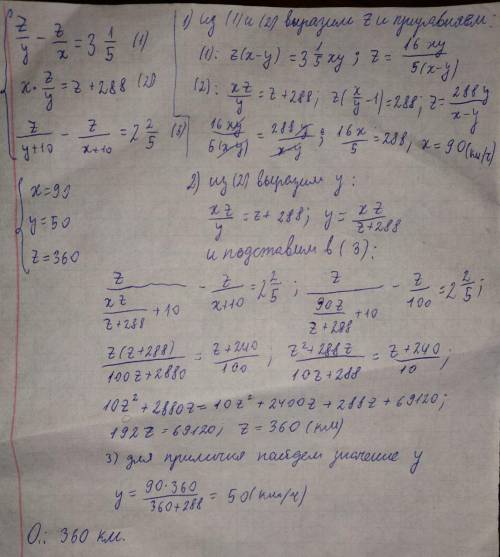 z/y - z/x = 3 1/5 (1)
x · z/y = z + 288 (2)
z/(y+10) - z/(x+10) = 2 2/5 (3)
1) из (1) и (2) выразим z и приравняем:
(1): z(x-y) = 3 1/5 xy ; z = 16xy/(5(x-y))
(2): xz/y = z + 288; z(x/y - 1) = 288; z = 288y/(x-y)
16xy/(5(x-y)) = 288y/(x-y) ; 16x/5 = 288, x = 90 (км/ч)
x = 90
y = 50
z = 360
2) из (2) выразим y:
xz/y = z + 288; y = xz/(z+288)
и подставим в (3):
z/(xz/(z+288) + 10) - z/(x+10) = 2 2/5 ; z/(90z/(z+288) + 10) - z/100 = 2 2/5 ;
z(z+288)/(100z+2880) = (z+240)/100 ; (z²+288z)/(10z+288) = (z+240)/10 ;
10z² + 2880z = 10z² + 2400z + 288z + 69120;
192z = 69120; z = 360 (км)
3) для приличия найдем значение y
y = 90·360/(360+288) = 50 (км/ч)
О.: 360 км.